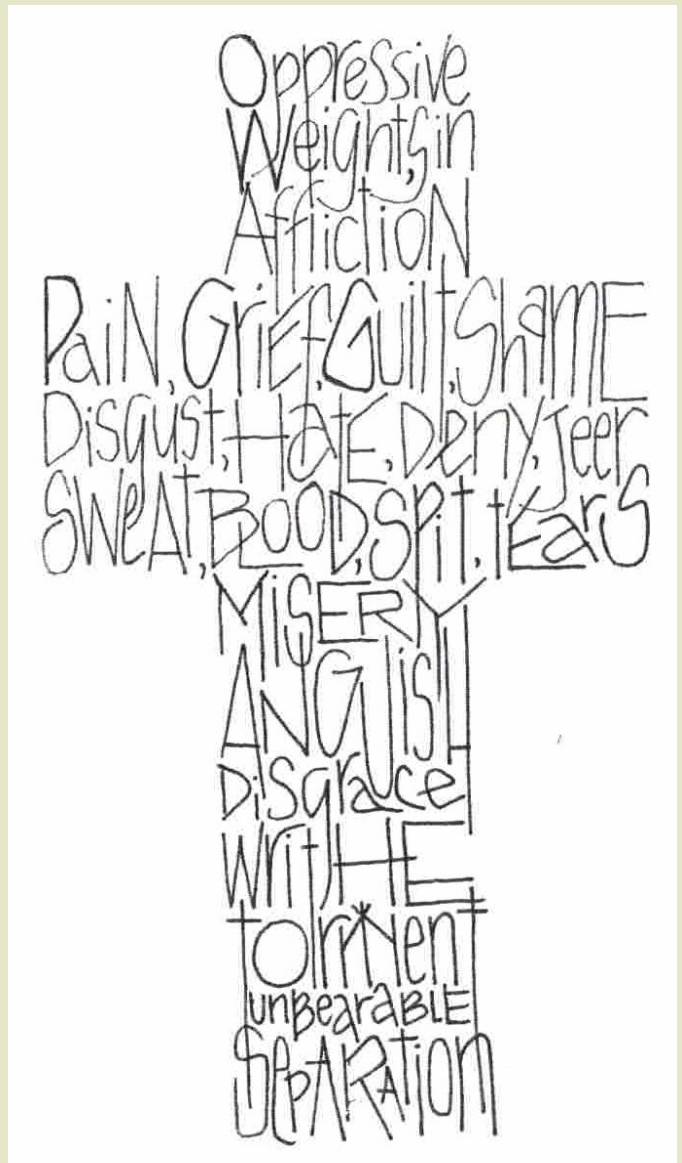 Oppressive
Weights, in
AfflictioN
PaiN, GriEf, Guilt, ShamE
Disgust, HatE, Deny, Jeer
SWeAt, BLOOD, SPit, tEarS
MiSERY
ANGUiSH
DiSgrace
WritHE
tOrMent
unBearaBLE
SepARAtion